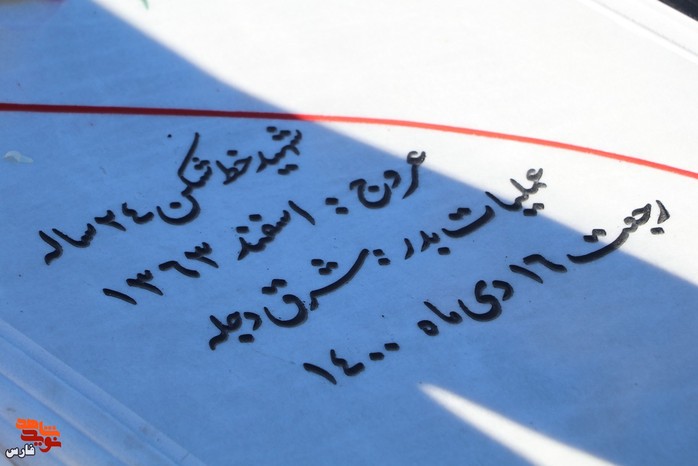 شهید خط شکن ۲۴ ساله
عروج: اسفند ۱۳۶۳
عملیات بدر - شرق دجله
رجعت ۱۶ دی ماه ۱۴۰۰
نوید شاهد
فارس